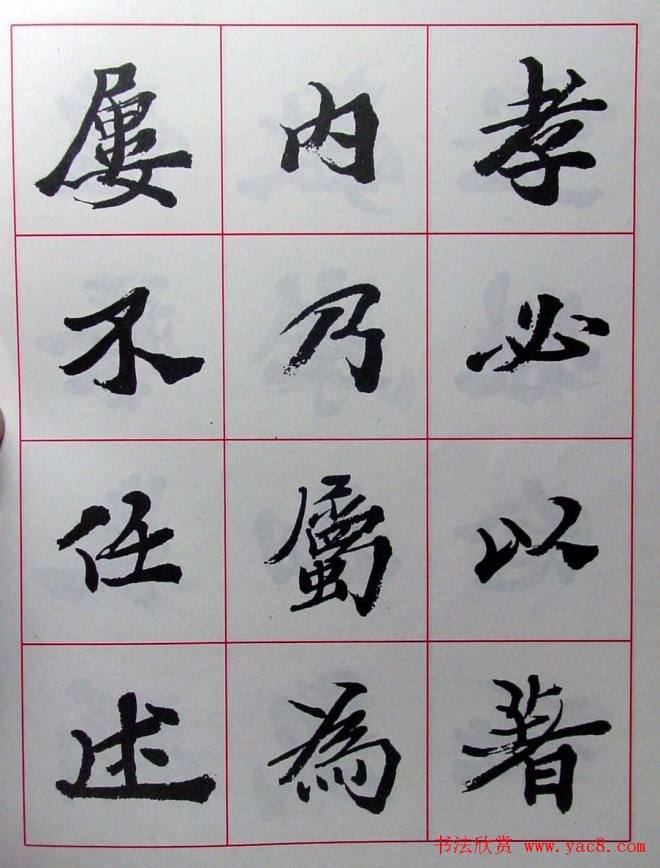 孝必以著
内乃屬為
屢不任述
书法欣赏 www.yac8.com